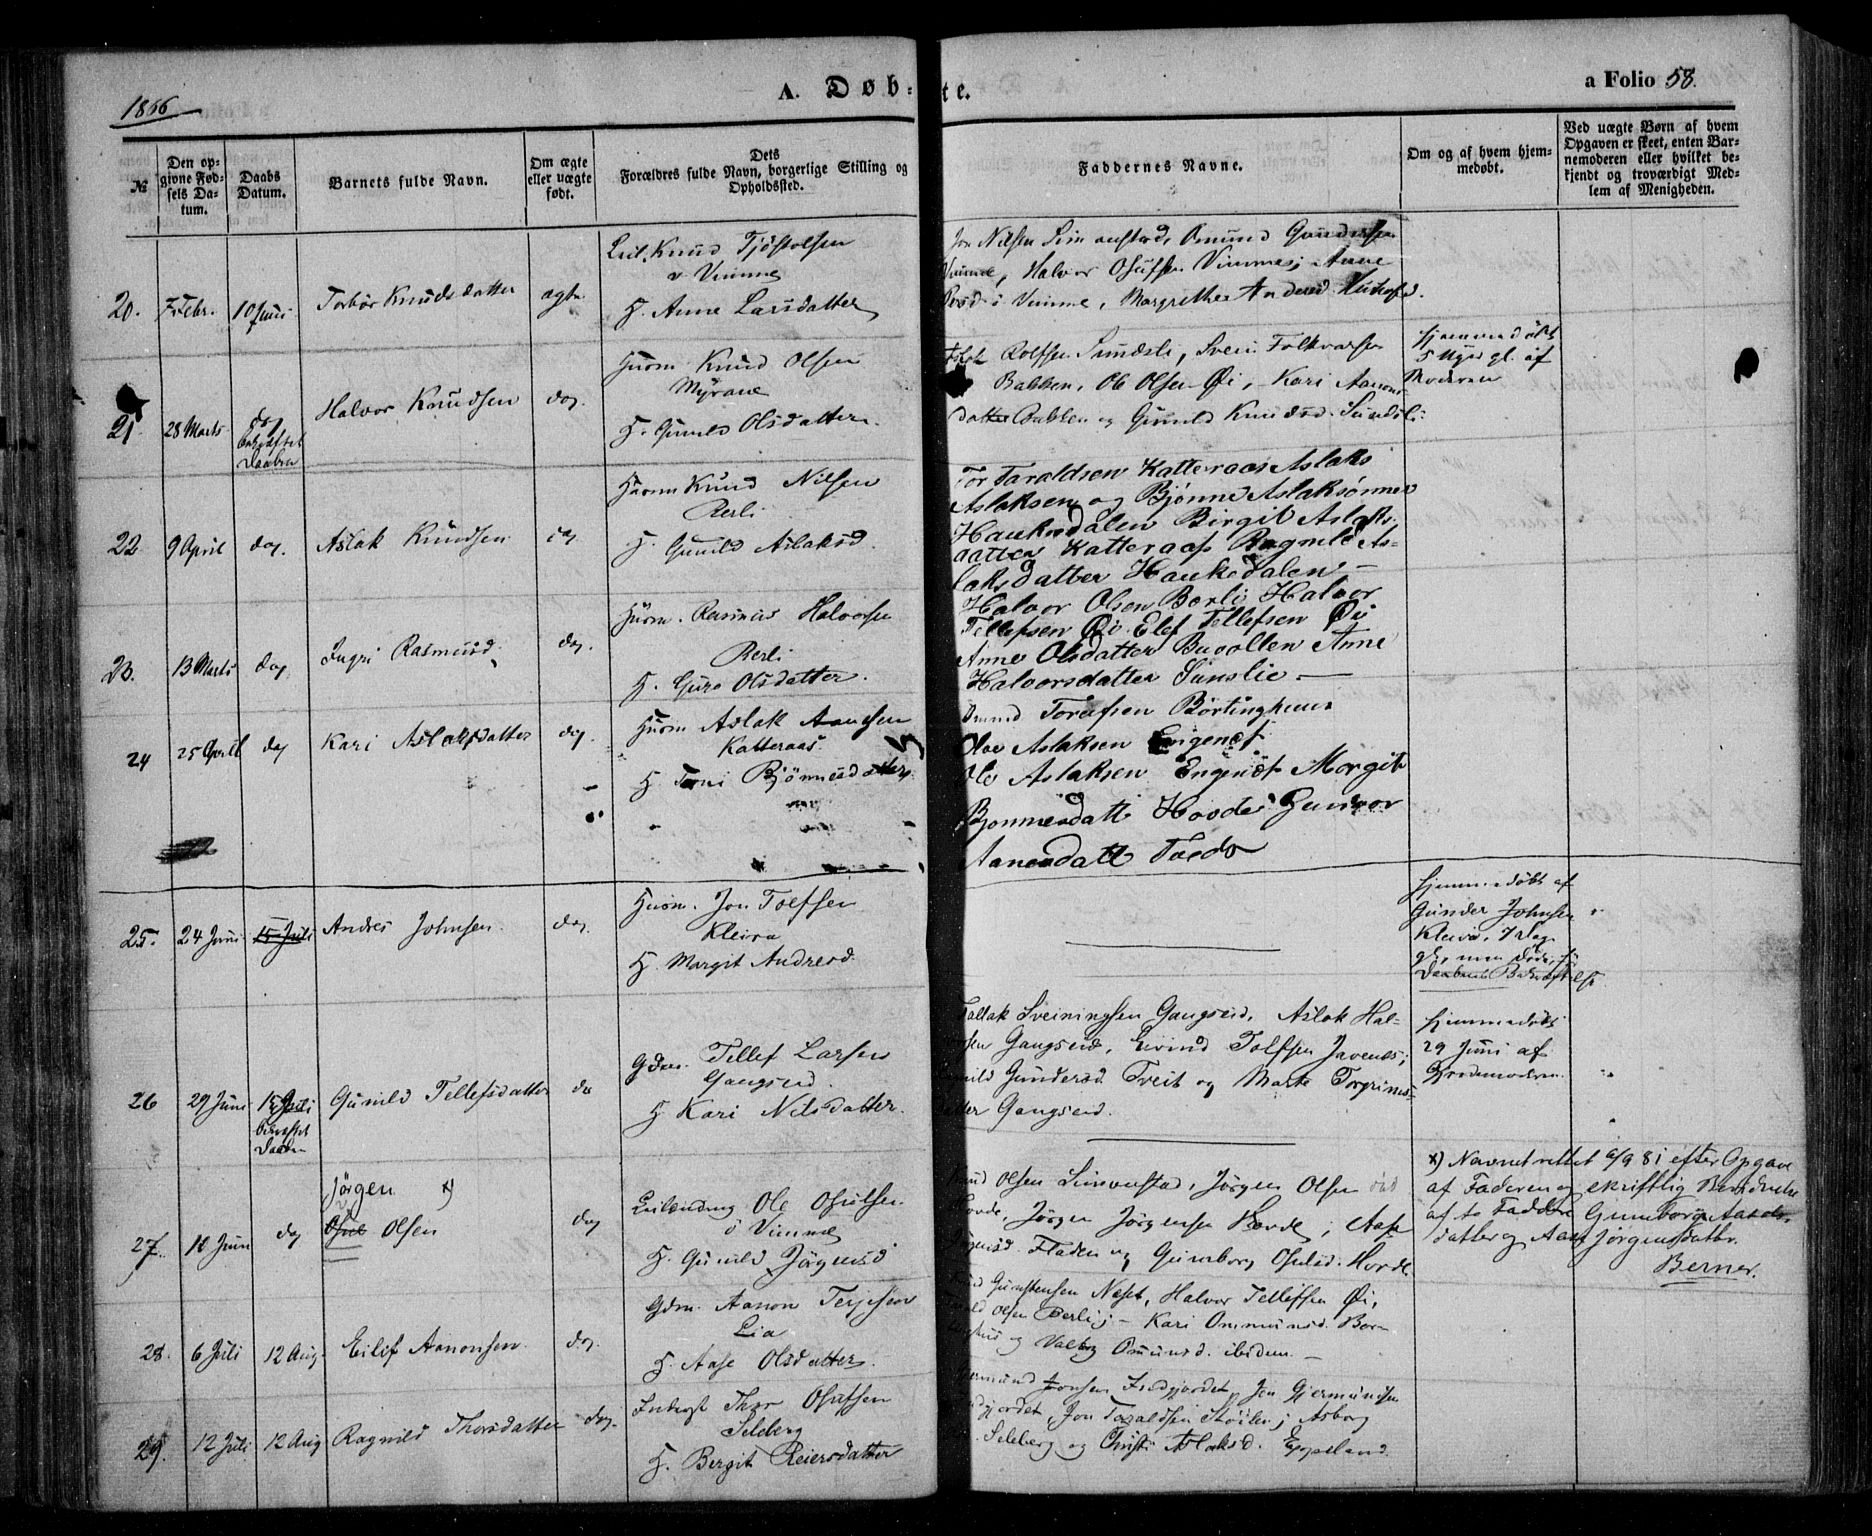 1856
A. Døb-
te.
a Folio 58.
№
Den op-
givne Fød-
sels Da-
tum.
Daabs
Datum.
Barnets fulde Navn.
Om ægte
eller uægte
født.
Dets
Forældres fulde Navn, borgerlige Stilling og
Opholdssted.
Faddernes Navne.
Om og af hvem hjem-
medøbt.
Ved uægte Børn af hvem
Opgaven er skeet, enten Bar-
nemoderen eller hvilket be-
kjendt og troværdigt Med-
lem af Menigheden.
20. 7 Febr. 10 Juni Torbør Knudsdatter ægte.
Leil. Knud Tjøstolsen
Vimme
H. Anne Larsdatter
Jon Nilsen Simonstad, Omund Gundersen
Vimme, Halvor Osufsen Vimmes; Anne
i Vimme, Margrethe Andersd.
21 28 Marts do
bekræftet
Daaben
Halvor Knudsen do.
Huusm Knud Olsen
Myrane
H. Gunild Olsdatter.
Rolfsen Sundsli, Svein Folkvarsen
Bakken, Ole Olsen Øi, Kari Aanons
datter Bakken og Gunild Knudsd. Sundsli
Hjemmedøbt
5 Uger gl. af
Moderen
22 9 April do. Aslak Knudsen do
Huusm Knud Nilsen
Berli
H. Gunild Aslaksd.
Tor Taraldsen Katteraas Aslak
Aslaksen og Bjønne Aslaksønner
Haukedalen Birgit Aslaks-
datter Katteraas Ragnild As-
laksdatter Haukedalen —
23. 13 Marts do Ingri Rasmusd. do.
Huusm. Rasmus Halvorsen
Berli
H. Guro Olsdatter.
Halvor Olsen Berli Halvor
Tellefsen Øi Elef Tellefsen Øi
Anne Olsdatter Buvollen Anne
Halvorsdatter Sunslie —
24 25 April do Kari Aslaksdatter do.
Huusm Aslak Aanesen
Katteraas.
H. Torni Bjønnesdatter
Omund Torefsen Börtinghuus
Ole Aslaksen
Ole Aslaksen Engenes Morgit
Bjonnesdatt Hovde Gunvor
Aanesdatt
25. 24 Juni 15 Juli Andres Johnsen do.
Huusm. Jon Tolfsen
Kleiva
H. Margit Andresd.
Hjemmedøbt af
Gunder Johnsen
Kleiva, 7 Dage
gl., men døde før
Daabens Bekræftelse
26 29 Juni 15 Juli
bekræftet
Daaben
Gunild Tellefsdatter do
Gdm. Tellef Larsen
Gangseid.
H Kari Nilsdatter.
Tallak Sveiningsen Gangseid, Aslak Hal-
vorsen Gangseid, Eivind Tolfsen Javenes;
Gunild Gundersd. Treit og Marte Torgrims-
datter Gangseid.
Hjemmedøbt
29 Juni af
Jordemoderen.
27. 10 Juni do Jörgen x)
Osul Olsen do
Leilænding Ole Osulsen
i Vimme
H. Gunild Jörgensd
Knud Olsen Simonstad, Jörgen Olsen
Hovde, Jörgen Jörgensen Hovde; Aase
Jörgensd. Fladen og Gunborg Osulsd. Hovde
x) Navnet rettet 6/9 81 efter Opgave
af Faderen og skriftlig Bevidnelse
af to Faddere Gunborg
datter og Aase Jörgensdatter.
Berner.
28. 6 Juli 12 Aug. Eilif Aanonsen do.
Gdm. Aanon Terjesen
Lia
H. Aase Olsdatter.
Gunstensen Næset, Halvor Tellefsen Øi,
Olsen Berli; – Kari Ommunsd. Bør-
tinghus og Valborg Omundsd. ibidem. —
29. 12 Juli 12 Aug Ragnild Thorsdatter do.
Inderst Thor Osufsen
Selberg
H. Bergit Reiersdatter
Gjermund Jonsen, Jon Gjermundsen
Jon Taraldsen Stöilen; Asborg
Selberg og Christi Aslaksd. Eppeland.